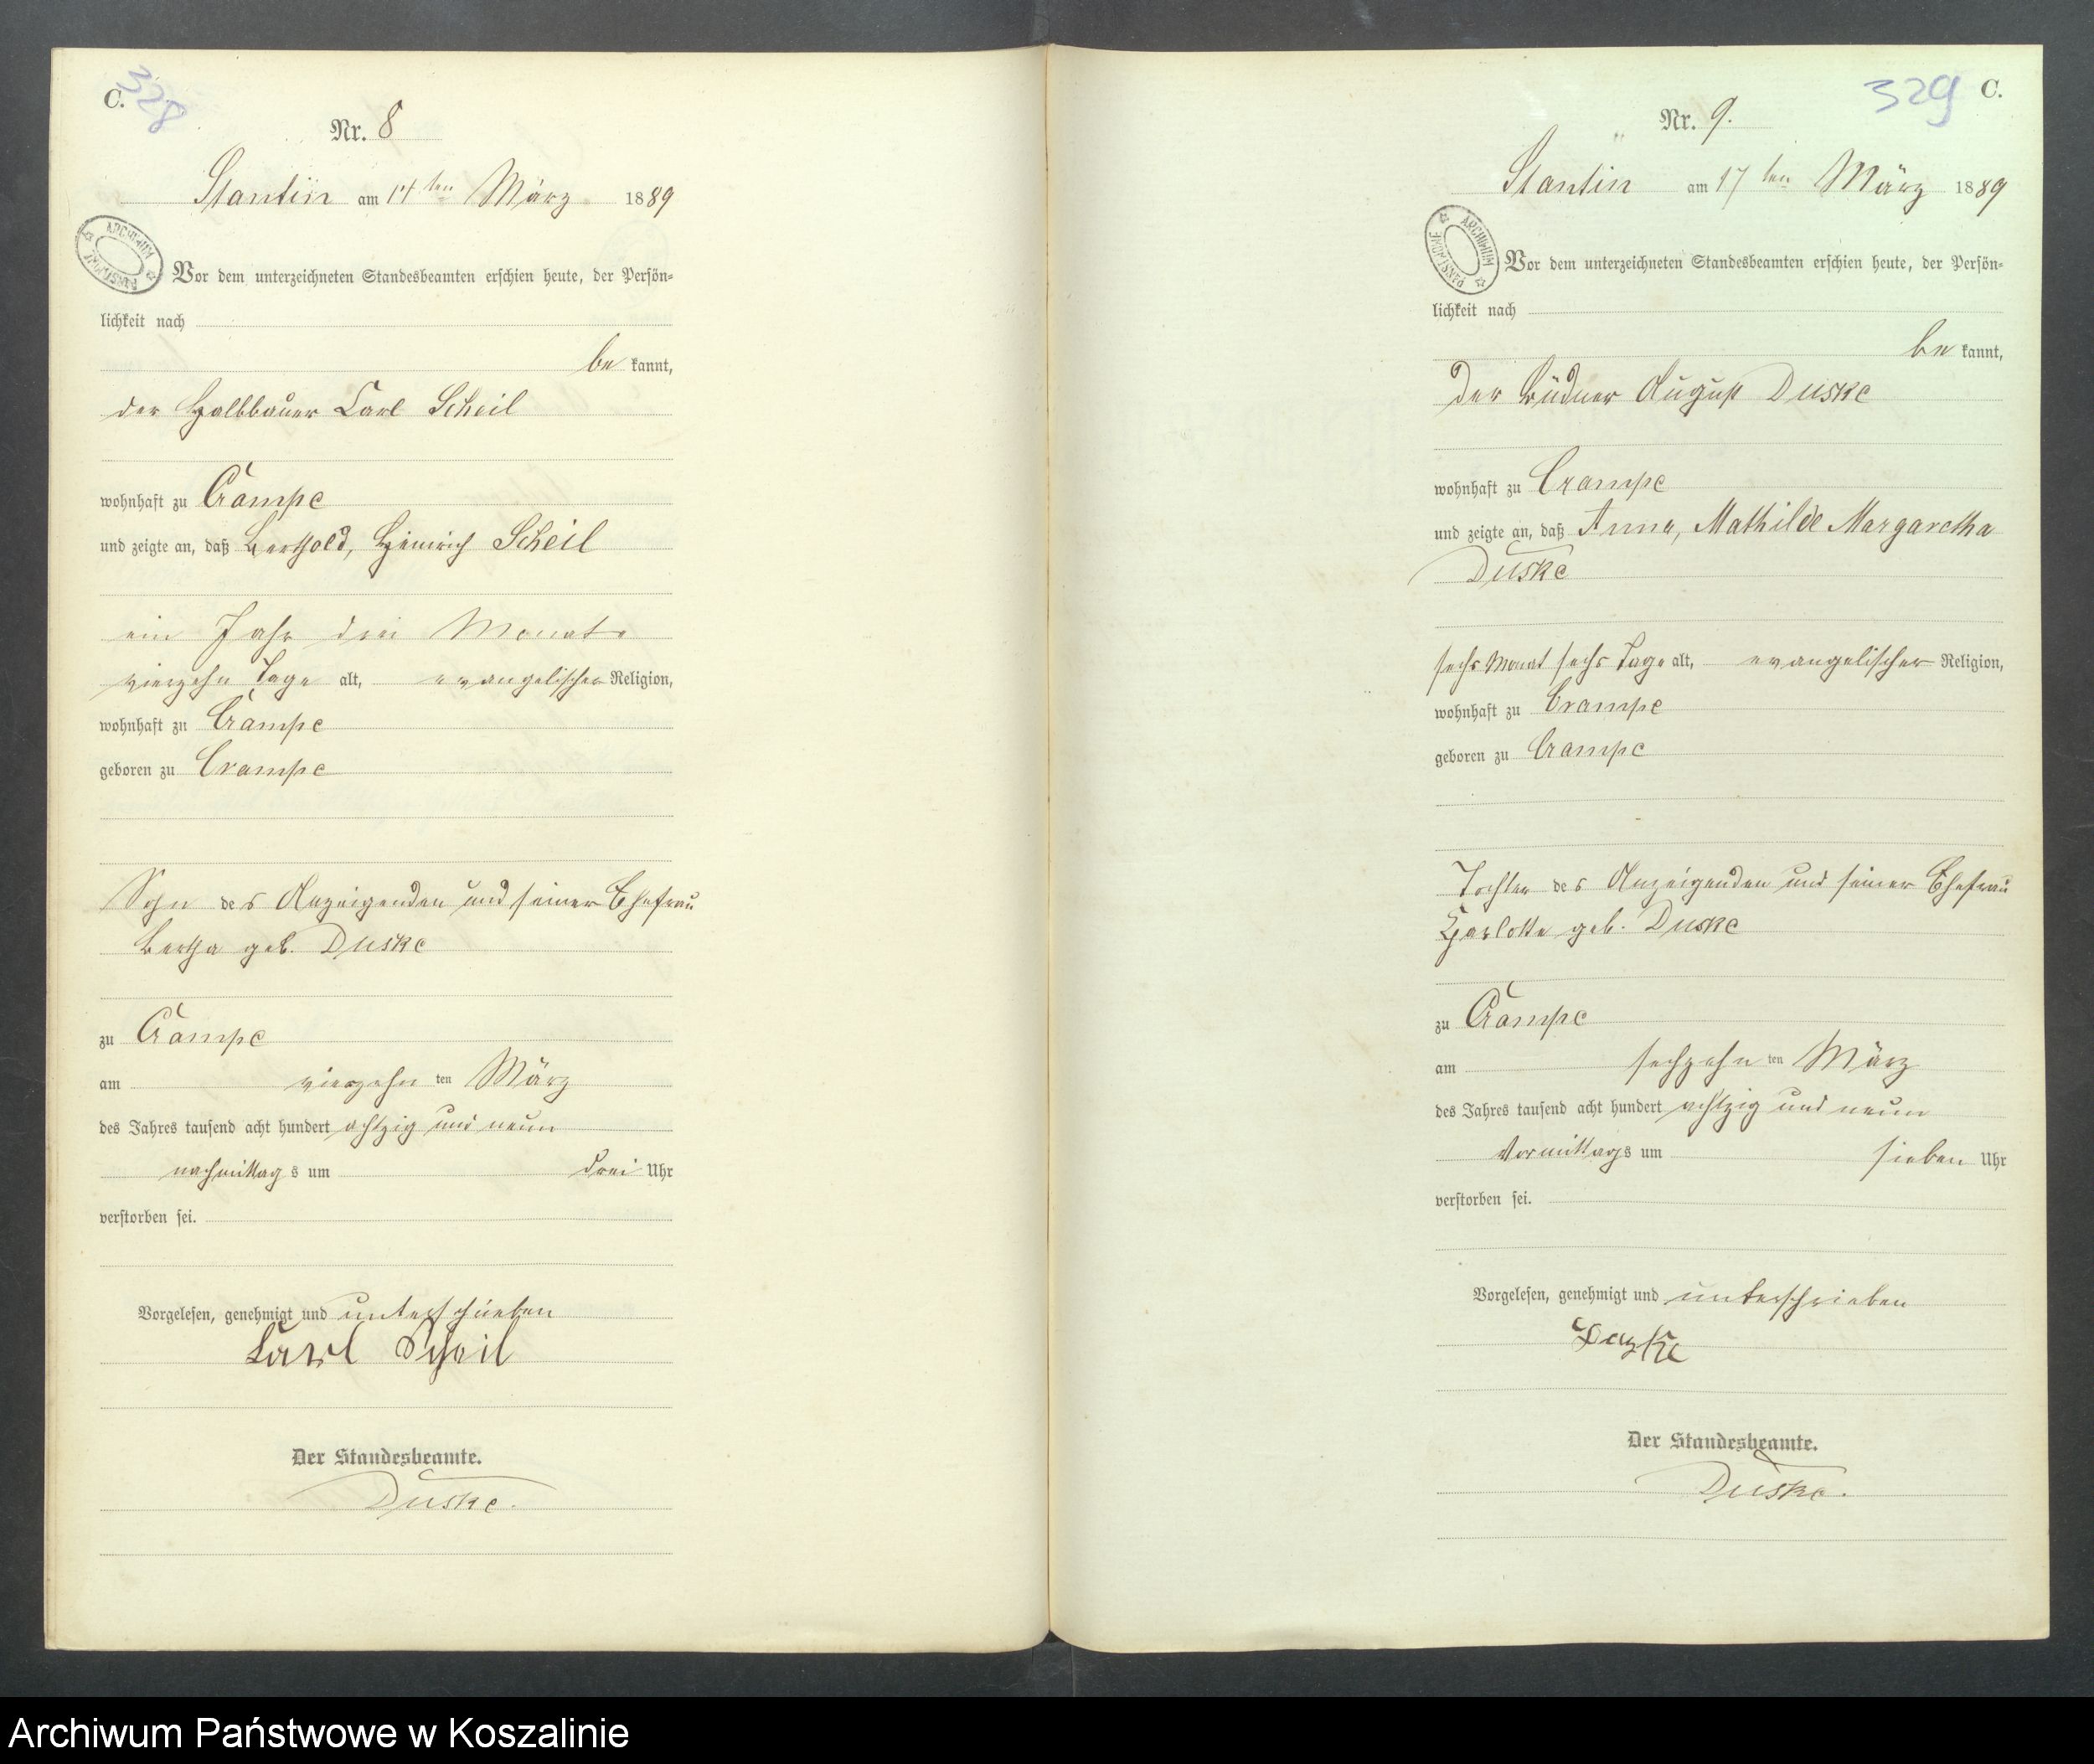 C.
328
Nr. 8
Stantin am 14ten März 1889
ARCHIWUM PAŃSTWOWE
Vor dem unterzeichneten Standesbeamten erschien heute, der Persön-
lichkeit nach
be kannt,
der Halbbauer Carl Scheil
wohnhaft zu Crampe
und zeigte an, daß Berthold, Heinrich Scheil
ein Jahr drei Monate
vierzehn Tage alt, evangelischer Religion,
wohnhaft zu Crampe
geboren zu Crampe
Sohn des Anzeigenden und seiner Ehefrau
Bertha geb. Duske
zu Crampe
am vierzehn ten März
des Jahres tausend acht hundert achtzig und neun
nachmittags um drei Uhr
verstorben sei.
Vorgelesen, genehmigt und unterschrieben
Carl Scheil
Der Standesbeamte.
Duske.
329 C.
Nr. 9.
Stantin am 17ten März 1889
ARCHIWUM PAŃSTWOWE
Vor dem unterzeichneten Standesbeamten erschien heute, der Persön-
lichkeit nach
be kannt,
der Büdner August Duske
wohnhaft zu Crampe
und zeigte an, daß Anna, Mathilde Margaretha
Duske
sechs Monat sechs Tage alt, evangelischer Religion,
wohnhaft zu Crampe
geboren zu Crampe
Tochter des Anzeigenden und seiner Ehefrau
Harlotte geb. Duske
zu Crampe
am sechzehn ten März
des Jahres tausend acht hundert achtzig und neun
Vormittags um sieben Uhr
verstorben sei.
Vorgelesen, genehmigt und unterschrieben
Der Standesbeamte.
Duske.
Archiwum Państwowe w Koszalinie